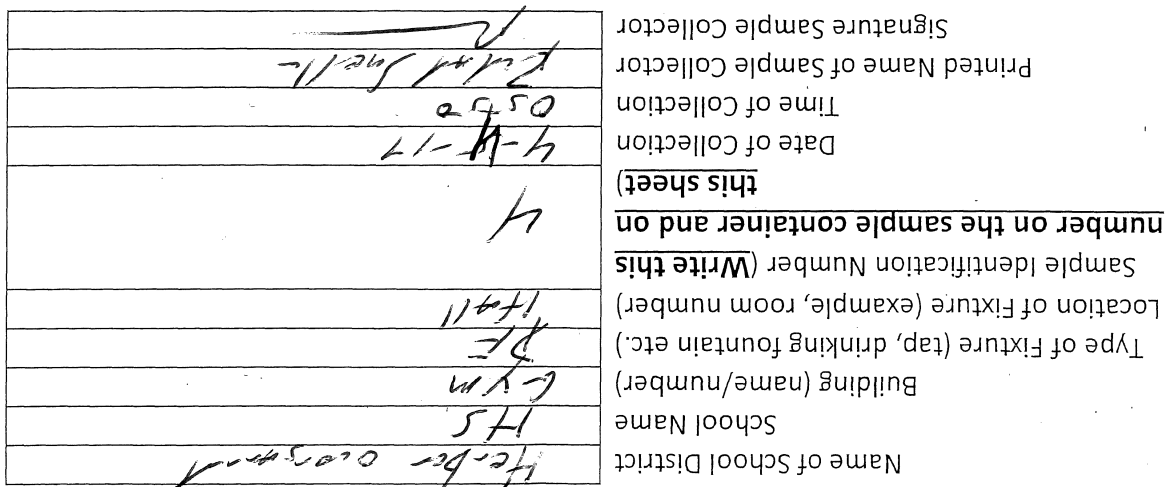 Name of School District
School Name HS
Building (name/number) Gym
Type of Fixture (tap, drinking fountain etc.) DF
Location of Fixture (example, room number) Hall
Sample Identification Number (Write this
number on the sample container and on
this sheet) 4
Date of Collection
Time of Collection
Printed Name of Sample Collector
Signature Sample Collector